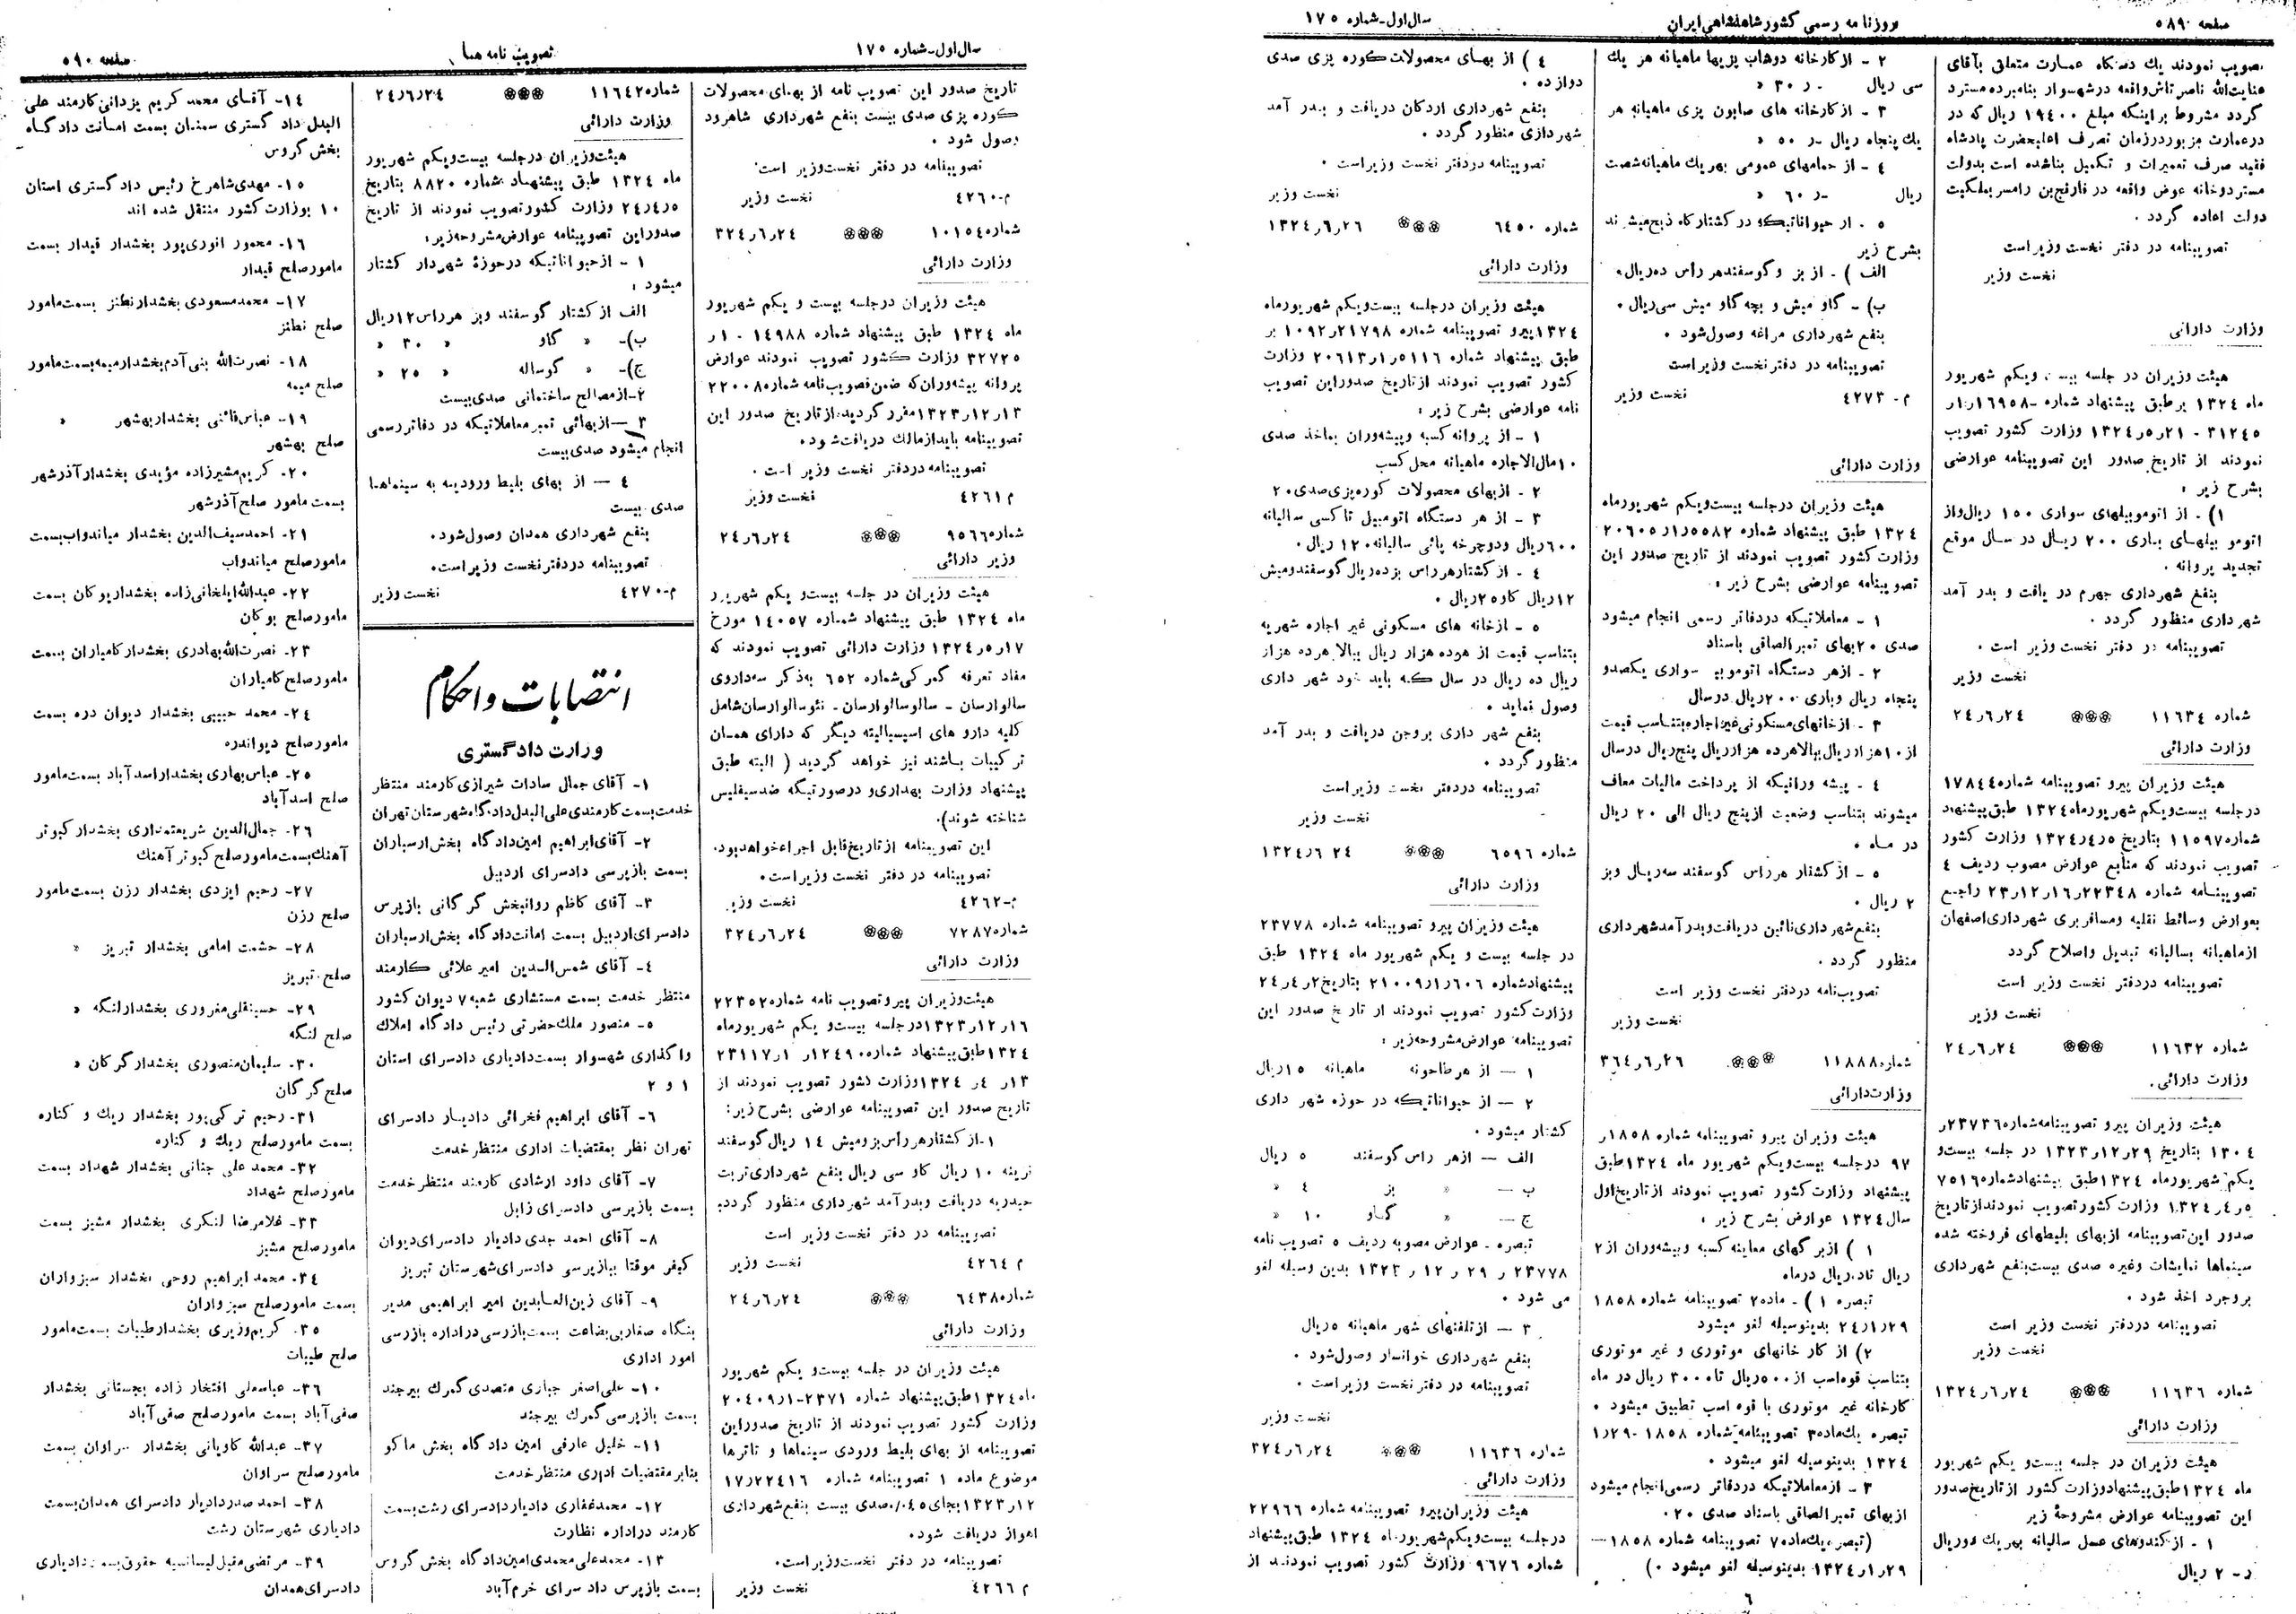 صفحه ۵۸۹
روزنامه رسمی کشور شاهنشاهی ایران
سال اول-شماره ۱۷۵
تصویب نمودند یك دستگاه عمارت متعلق بآقای
عنایت‌الله ناصر تاش واقعه در شهسوار بنامبرده مسترد
گردد مشروط بر اینکه مبلغ ۱۹۴۰۰ ریال که در
درعمارت مزبور در زمان تصرف اعلیحضرت پادشاه
فقید صرف تعمیرات و تکمیل بنا شده است بدولت
مستردوخانه عوض واقعه در نارنج‌بن رامسر بملکیت
دولت اعاده گردد .
تصویبنامه در دفتر نخست وزیر است
نخست وزیر
وزارت دارائی
هیئت وزیران در جلسه بیست و یکم شهریور
ماه ۱۳۲۴ برطبق پیشنهاد شماره -۱۶۹۵۸ر۱ر
۳۱۲۴۵ - ۲۱ر۵ر۱۳۲۴ وزارت کشور تصویب
نمودند از تاریخ صدور این تصویبنامه عوارضی
بشرح زیر :
۱) - از اتوموبیلهای سواری ۱۵۰ ریال واز
اتومو بیلهای باری ۲۰۰ ریال در سال موقع
تجدید پروانه .
بنفع شهرداری جهرم در یافت و بدر آمد
شهرداری منظور گردد .
تصویبنامه در دفتر نخست وزیر است .
نخست وزیر
شماره ۱۱۶۳۴ ۲۴ر۶ر۲۴
وزارت دارائی
هیئت وزیران پیرو تصویبنامه شماره ۱۷۸۴۴
درجلسه بیست‌ویکم شهریورماه ۱۳۲۴ طبق پیشنهاد
شماره ۱۱۵۹۷ بتاریخ ۵ر۴ر۱۳۲۴ وزارت کشور
تصویب نمودند که منابع عوارض مصوب ردیف ۴
تصویبنامه شماره ۲۲۳۴۸ر۱۶ر۱۲ر۲۳ راجع
بعوارض وسائط نقلیه ومسافربری شهرداری اصفهان
ازماهیانه بسالیانه تبدیل واصلاح گردد
تصویبنامه دردفتر نخست وزیر است
نخست وزیر
شماره ۱۱۶۳۲ ۲۴ر۶ر۲۴
وزارت دارائی.
هیئت وزیران پیرو تصویبنامه‌شماره ۲۳۷۳۶ر
۱۳۰۴ بتاریخ ۲۹ر۱۲ر۱۳۲۳ در جلسه بیست‌و
یکم شهریور ماه ۱۳۲۴ طبق پیشنهادشماره ۷۵۱۶
۵ر۴ر۱۳۲۴ وزارت کشور تصویب نمودنداز تاریخ
صدور این تصویبنامه ازبهای بلیطهای فروخته شده
سینماها نمایشات وغیره صدی بیست بنفع شهرداری
بروجرد اخذ شود .
تصویبنامه دردفتر نخست وزیر است
نخست وزیر
شماره ۱۱۶۳۶ ۲۴ر۶ر۱۳۲۴
وزارت دارائی
هیئت وزیران در جلسه بیست‌و یکم شهریور
ماه ۱۳۲۴ طبق‌پیشنهاد وزارت کشور از تاریخ صدور
این تصویبنامه عوارض مشروحهٔ زیر
۱ - از کندوهای عسل سالیانه بهریك دوریال
ر- ۲ ریال
۲ - از کارخانه دوشاب پزیها ماهیانه هر یك
سی ریال -ر ۳۰ «
۳ - از کارخانه های صابون پزی ماهیانه هر
یك پنجاه ریال -ر ۵۰ «
۴ - از حمامهای عمومی بهر یك ماهیانه شصت
ریال -ر ۶۰ «
۵ . از حیواناتیکه در کشتارگاه ذبح میشوند
بشرح زیر
الف ) - از بز و گوسفند هر راس ده ریال.
ب) - گاو میش و بچه گاو میش سی ریال .
بنفع شهرداری مراغه وصول شود .
تصویبنامه در دفتر نخست وزیر است
م- ۴۲۷۳ نخست وزیر
وزارت دارائی
هیئت وزیران در جلسه بیست‌ویکم شهریورماه
۱۳۲۴ طبق پیشنهاد شماره ۵۵۸۲ر۱ر۲۰۶۰۵
وزارت کشور تصویب نمودند از تاریخ صدور این
تصویبنامه عوارضی بشرح زیر :
۱ - معاملاتیکه دردفاتر رسمی انجام میشود
صدی ۲۰ بهای تمبر الصاقی باسناد
۲ - ازهر دستگاه اتوموبیل سواری یکصدو
پنجاه ریال وباری ۲۰۰ ریال درسال
۳ - ازخانهای مسکونی غیراجاره بتناسب قیمت
از ۱۰ هزار ریال ببالا هرده هزارریال پنج ریال درسال
۴ - پیشه ورانیکه از پرداخت مالیات معاف
میشوند بتناسب وضعیت از پنج ریال الی ۲۰ ریال
در ماه .
۵ - از کشتار هرراس گوسفند سه ریال وبز
۲ ریال .
بنفع شهرداری نائین دریافت و بدرآمد شهرداری
منظور گردد .
تصویب‌نامه دردفتر نخست وزیر است
نخست وزیر
شماره ۱۱۸۸۸ ۲۶ر۶ر۳۶۴
وزارت دارائی
هیئت وزیران پیرو تصویبنامه شماره ۱۸۵۸ر
۹۷ درجلسه بیست‌ویکم شهریور ماه ۱۳۲۴ طبق
پیشنهاد وزارت کشور تصویب نمودند از تاریخ اول
سال ۱۳۲۴ عوارض بشرح زیر :
۱ ) از برگهای معاینه کسبه وپیشه‌وران از ۲
ریال تاده ریال درماه
تبصره ۱ ) - ماده۲ تصویبنامه شماره ۱۸۵۸
۲۹ر۱ر۲۴ بدینوسیله لغو میشود
۲) از کار خانهای موتوری و غیر موتوری
بتناسب قوه‌اسب از ۵۰۰ ریال تا ۳۰۰۰ ریال در ماه
کارخانه غیر موتوری با قوه اسب تطبیق میشود .
تبصره یك‌ماده ۳ تصویبنامه شماره ۱۸۵۸ -۱ر۲۹
۱۳۲۴ بدینوسیله لغو میشود .
۳ - از معاملاتیکه دردفاتر رسمی انجام میشود
ازبهای تمبر الصاقی باسناد صدی ۲۰ .
(تبصره یك‌ماده ۷ تصویبنامه شماره ۱۸۵۸ —
۲۹ر۱ر۱۳۲۴ بدینوسیله لغو میشود .)
۶
۴ ) از بهای محصولات کوره پزی صدی
دوازده .
بنفع شهرداری اردکان دریافت و بدر آمد
شهرداری منظور گردد .
تصویبنامه دردفتر نخست وزیراست .
نخست وزیر
شماره ۶۴۵۰ ۲۶ر۶ر۱۳۲۴
وزارت دارائی
هیئت وزیران درجلسه بیست‌ویکم شهریورماه
۱۳۲۴ پیرو تصویبنامه شماره ۲۱۷۹۸ر۱۰۹۲ بر
طبق پیشنهاد شماره ۵۱۱۶ر۱ر۲۰۶۱۳ وزارت
کشور تصویب نمودند ازتاریخ صدوراین تصویب
نامه عوارضی بشرح زیر :
۱ - از پروانه کسبه وپیشه‌وران بماخذ صدی
۱۰ مال‌الاجاره ماهیانه محل کسب
۲ - ازبهای محصولات کوره‌پزی‌صدی ۲۰
۳ - از هر دستگاه اتومبیل تاکسی سالیانه
۶۰۰ ریال ودوچرخه پائی سالیانه ۱۲۰ ریال.
۴ - ازکشتار هرراس بزده‌ریال گوسفندومیش
۱۲ ریال گاو ۲۵ ریال .
۵ - ازخانه های مسکونی غیر اجاره شهریه
بتناسب قیمت از هرده هزار ریال ببالا هرده هزار
ریال ده ریال در سال که باید خود شهر داری
وصول نماید .
بنفع شهر داری بروجن دریافت و بدر آمد
منظورگردد .
تصویبنامه دردفتر نخست وزیراست
نخست وزیر
شماره ۶۵۹۶ ۲۴ ۶ر۱۳۲۴
وزارت دارائی
هیئت وزیران پیرو تصویبنامه شماره ۲۳۷۷۸
در جلسه بیست و یکم شهریور ماه ۱۳۲۴ طبق
پیشنهادشماره ۶۰۶ر۱ر۲۱۰۰۹ بتاریخ ۲ر۴ر۲۴
وزارت کشور تصویب نمودند از تاریخ صدور این
تصویبنامه عوارض مشروحه زیر :
۱ — از هر طاحونه ماهیانه ۱۵ ریال
۲ — از حیواناتیکه در حوزه شهر داری
کشتار میشود .
الف — ازهر راس گوسفند ۵ ریال
ب — « بز ۴ «
ج — « گاو ۱۰ «
تبصره - عوارض مصوبه ردیف ۵ تصویب نامه
۲۳۷۷۸ ر ۲۹ ر ۱۲ ر ۱۳۲۳ بدین وسیله لغو
می شود .
۳ — از تلفنهای شهر ماهیانه ۵ ریال
بنفع شهرداری خوانسار وصول شود .
تصویبنامه دردفتر نخست وزیر است .
نخست وزیر
شماره ۱۱۶۳۶ ۲۴ر۶ر۳۲۴
وزارت دارائی
هیئت وزیران پیرو تصویبنامه شماره ۲۲۹۶۶
درجلسه بیست‌ویکم شهریورماه ۱۳۲۴ طبق پیشنهاد
شماره ۹۶۷۶ وزارت کشور تصویب نمودند از
سال اول-شماره ۱۷۵
تصویب نامه ها
صفحه ۵۹۰
تاریخ صدور این تصویب نامه از بهای محصولات
کوره پزی صدی بیست بنفع شهرداری شاهرود
وصول شود .
تصویبنامه در دفتر نخست وزیر است
م-۴۲۶۰ نخست وزیر
شماره ۱۰۱۵۴ ۲۴ر۶ر۳۲۴
وزارت دارائی
هیئت وزیران درجلسه بیست و یکم شهریور
ماه ۱۳۲۴ طبق پیشنهاد شماره ۱۴۹۸۸ -۱ر
۳۲۷۲۵ وزارت کشور تصویب نمودند عوارض
پروانه پیشه‌وران‌که ضمن تصویب‌نامه شماره ۲۲۰۰۸
۱۳ر۱۲ر۱۳۲۳ مقرر گردیده از تاریخ صدور این
تصویبنامه بایدازمالك دریافت‌شود.
تصویبنامه دردفتر نخست وزیر است .
م ۴۲۶۱ نخست وزیر
شماره ۹۵۶۶ ۲۴ر۶ر۲۴
وزیر دارائی
هیئت وزیران در جلسه بیست‌و یکم شهریور
ماه ۱۳۲۴ طبق پیشنهاد شماره ۱۴۰۵۷ مورخ
۱۷ر۵ر۱۳۲۴ وزارت دارائی تصویب نمودند که
مفاد تعرفه گمرکی‌شماره ۶۵۲ به‌ذکر سه‌داروی
سالوارسان - سالوسالوارسان - نئوسالوارسان شامل
کلیه دارو های اسپسیالیته دیگر که دارای همان
ترکیبات باشند نیز خواهد گردید ( البته طبق
پیشنهاد وزارت بهداری و درصورتیکه ضدسیفلیس
شناخته شوند).
این تصویبنامه از تاریخ قابل اجراء خواهدبود.
تصویبنامه در دفتر نخست وزیر است.
م-۴۲۶۲ نخست وزیر
شماره ۷۲۸۷ ۲۴ر۶ر۳۲۴
وزارت دارائی
هیئت وزیران پیرو تصویب نامه شماره ۲۲۳۵۲
۱۶ر۱۲ر۱۳۲۳ درجلسه بیست‌و یکم شهریورماه
۱۳۲۴ طبق پیشنهاد شماره ۱۲۴۹۰ر ۱ر۲۳۱۱۷
۱۳ر ۴ر ۱۳۲۴ وزارت کشور تصویب نمودند از
تاریخ صدور این تصویبنامه عوارضی بشرح زیر:
۱-از کشتار هر راس بزومیش ۱۴ ریال گوسفند
نرینه ۱۰ ریال گاو سی ریال بنفع شهرداری تربت
حیدریه دریافت وبدرآمد شهرداری منظور گردد.
تصویبنامه در دفتر نخست وزیر است
م ۴۲۶۴ نخست وزیر
شماره ۶۴۳۸ ۲۴ر۶ر۲۴
وزارت دارائی
هیئت وزیران در جلسه بیست‌و یکم شهریور
ماه ۱۳۲۴ طبق پیشنهاد شماره ۲۳۷۱-۱ر۲۰۴۰۹
وزارت کشور تصویب نمودند از تاریخ صدوراین
تصویبنامه از بهای بلیط ورودی سینماها و تاترها
موضوع ماده ۱ تصویبنامه شماره ۱۷ر۲۲۴۱۶
۱۲ر۱۳۲۳ بجای ۰/۰۴۵ صدی بیست بنفع شهرداری
اهواز دریافت شود.
تصویبنامه در دفتر نخست وزیر است.
م ۴۲۶۶ نخست وزیر
شماره ۱۱۶۴۲ ۲۴ر۶ر۲۴
وزارت دارائی
هیئت‌وزیران درجلسه بیست‌ویکم شهریور
ماه ۱۳۲۴ طبق پیشنهاد شماره ۸۸۲۰ بتاریخ
۵ر۴ر۲۴ وزارت کشور تصویب نمودند از تاریخ
صدوراین تصویبنامه عوارض‌مشروحه‌زیر:
۱ - ازحیواناتیکه درحوزهٔ شهردار کشتار
میشود :
الف از کشتار گوسفند وبز هرراس ۱۲ ریال
ب)- « گاو « ۳۰ «
ج)- « گوساله « ۲۵ «
۲-ازمصالح ساختمانی صدی‌بیست
۳ —ازبهائی تمبر معاملاتیکه در دفاتر رسمی
انجام میشود صدی‌بیست
۴ — از بهای بلیط ورودیه به سینماها
صدی بیست
بنفع شهرداری همدان وصول‌شود.
تصویبنامه دردفترنخست وزیراست.
م-۴۲۷۰ نخست وزیر
انتصابات و احکام
وزارت دادگستری
۱- آقای جمال سادات شیرازی کارمند منتظر
خدمت بسمت کارمندی علی‌البدل دادگاه شهرستان تهران
۲- آقای ابراهیم امین دادگاه بخش ارسباران
بسمت بازپرسی دادسرای اردبیل
۳- آقای کاظم روانبخش گرگانی بازپرس
دادسرای اردبیل بسمت امانت دادگاه بخش ارسباران
۴- آقای شمس‌الدین امیر علائی کارمند
منتظر خدمت بسمت مستشاری شعبه ۷ دیوان کشور
۵- منصور ملك‌حضرتی رئیس دادگاه املاك
واگذاری شهسوار بسمت‌دادیاری دادسرای استان
۱ و ۲
۶- آقای ابراهیم فخرائی دادیار دادسرای
تهران نظر بمقتضیات اداری منتظر خدمت
۷- آقای داود ارشادی کارمند منتظر خدمت
بسمت بازپرسی دادسرای زابل
۸- آقای احمد جدی دادیار دادسرای دیوان
کیفر موقتا ببازپرسی دادسرای شهرستان تبریز
۹- آقای زین‌العابدین امیر ابراهیمی مدیر
بنگاه صغاربی‌بضاعت بسمت‌بازرسی دراداره بازرسی
امور اداری
۱۰- علی‌اصغر جباری متصدی گمرك بیرجند
بسمت بازپرسی گمرك بیرجند
۱۱- خلیل عارفی امین دادگاه بخش ماکو
بنابر مقتضیات اداری منتظرخدمت
۱۲- محمدغفاری دادیار دادسرای رشت بسمت
کارمند دراداره نظارت
۱۳- محمدعلی محمدی امین دادگاه بخش گروس
بسمت بازپرس داد سرای خرم‌آباد
۱۴- آقای محمد کریم یزدانی کارمند علی
البدل داد گستری سمنان بسمت امانت دادگاه
بخش گروس
۱۵- مهدی شاهرخ رئیس دادگستری استان
۱۰ بوزارت کشور منتقل شده اند
۱۶- محمود انوری‌پور بخشدار قیدار بسمت
مامورصلح قیدار
۱۷- محمدمسعودی بخشدارنطنز بسمت‌مامور
صلح نطنز
۱۸- نصرت‌الله بنی آدم بخشدارمیمه بسمت‌مامور
صلح میمه
۱۹- عباس قائنی بخشدار بهشهر «
صلح بهشهر
۲۰- کریم مشیرزاده مؤیدی بخشدار آذرشهر
بسمت مامور صلح آذرشهر
۲۱- احمدسیف‌الدین بخشدار میاندواب‌بسمت
مامورصلح میاندواب
۲۲- عبدالله ایلخانی‌زاده بخشداربوکان بسمت
مامورصلح بوکان
۲۳- نصرت‌الله بهادری بخشدارکامیاران بسمت
مامورصلح کامیاران
۲۴- محمد حبیبی بخشدار دیوان دره بسمت
مامورصلح دیواندره
۲۵- عباس بهاری بخشداراسدآباد بسمت‌مامور
صلح اسدآباد
۲۶- جمال‌الدین شریعتمداری بخشدار کبوتر
آهنگ بسمت مامورصلح کبوتر آهنگ
۲۷- رحیم ایزدی بخشدار رزن بسمت‌مامور
صلح رزن
۲۸- حشمت امامی بخشدار تبریز «
صلح تبریز
۲۹- حسینقلی مغروری بخشدارلنگه «
صلح لنگه
۳۰- سلیمان‌منصوری بخشدارگرگان «
صلح گرگان
۳۱- رحیم ترکی‌پور بخشدار ریك و کناره
بسمت مامورصلح ریك و کناره
۳۲- محمد علی جنانی بخشدار شهداد بسمت
مامورصلح شهداد
۳۳- غلامرضا لنگری بخشدار مشیز بسمت
مامورصلح مشیز
۳۴- محمد ابراهیم روحی بخشدار سبزواران
بسمت مامورصلح سبزواران
۳۵- کریم‌وزیری بخشدارطیبات بسمت‌مامور
صلح طیبات
۳۶- عباسعلی افتخار زاده بجستانی بخشدار
صفی‌آباد بسمت مامورصلح صفی‌آباد
۳۷- عبدالله کاویانی بخشدار سراوان بسمت
مامورصلح سراوان
۳۸- احمد صدردادیار دادسرای همدان‌بسمت
دادیاری شهرستان رشت
۳۹- مرتضی مقبل لیسانسیه حقوق بسمت دادیاری
دادسرای همدان